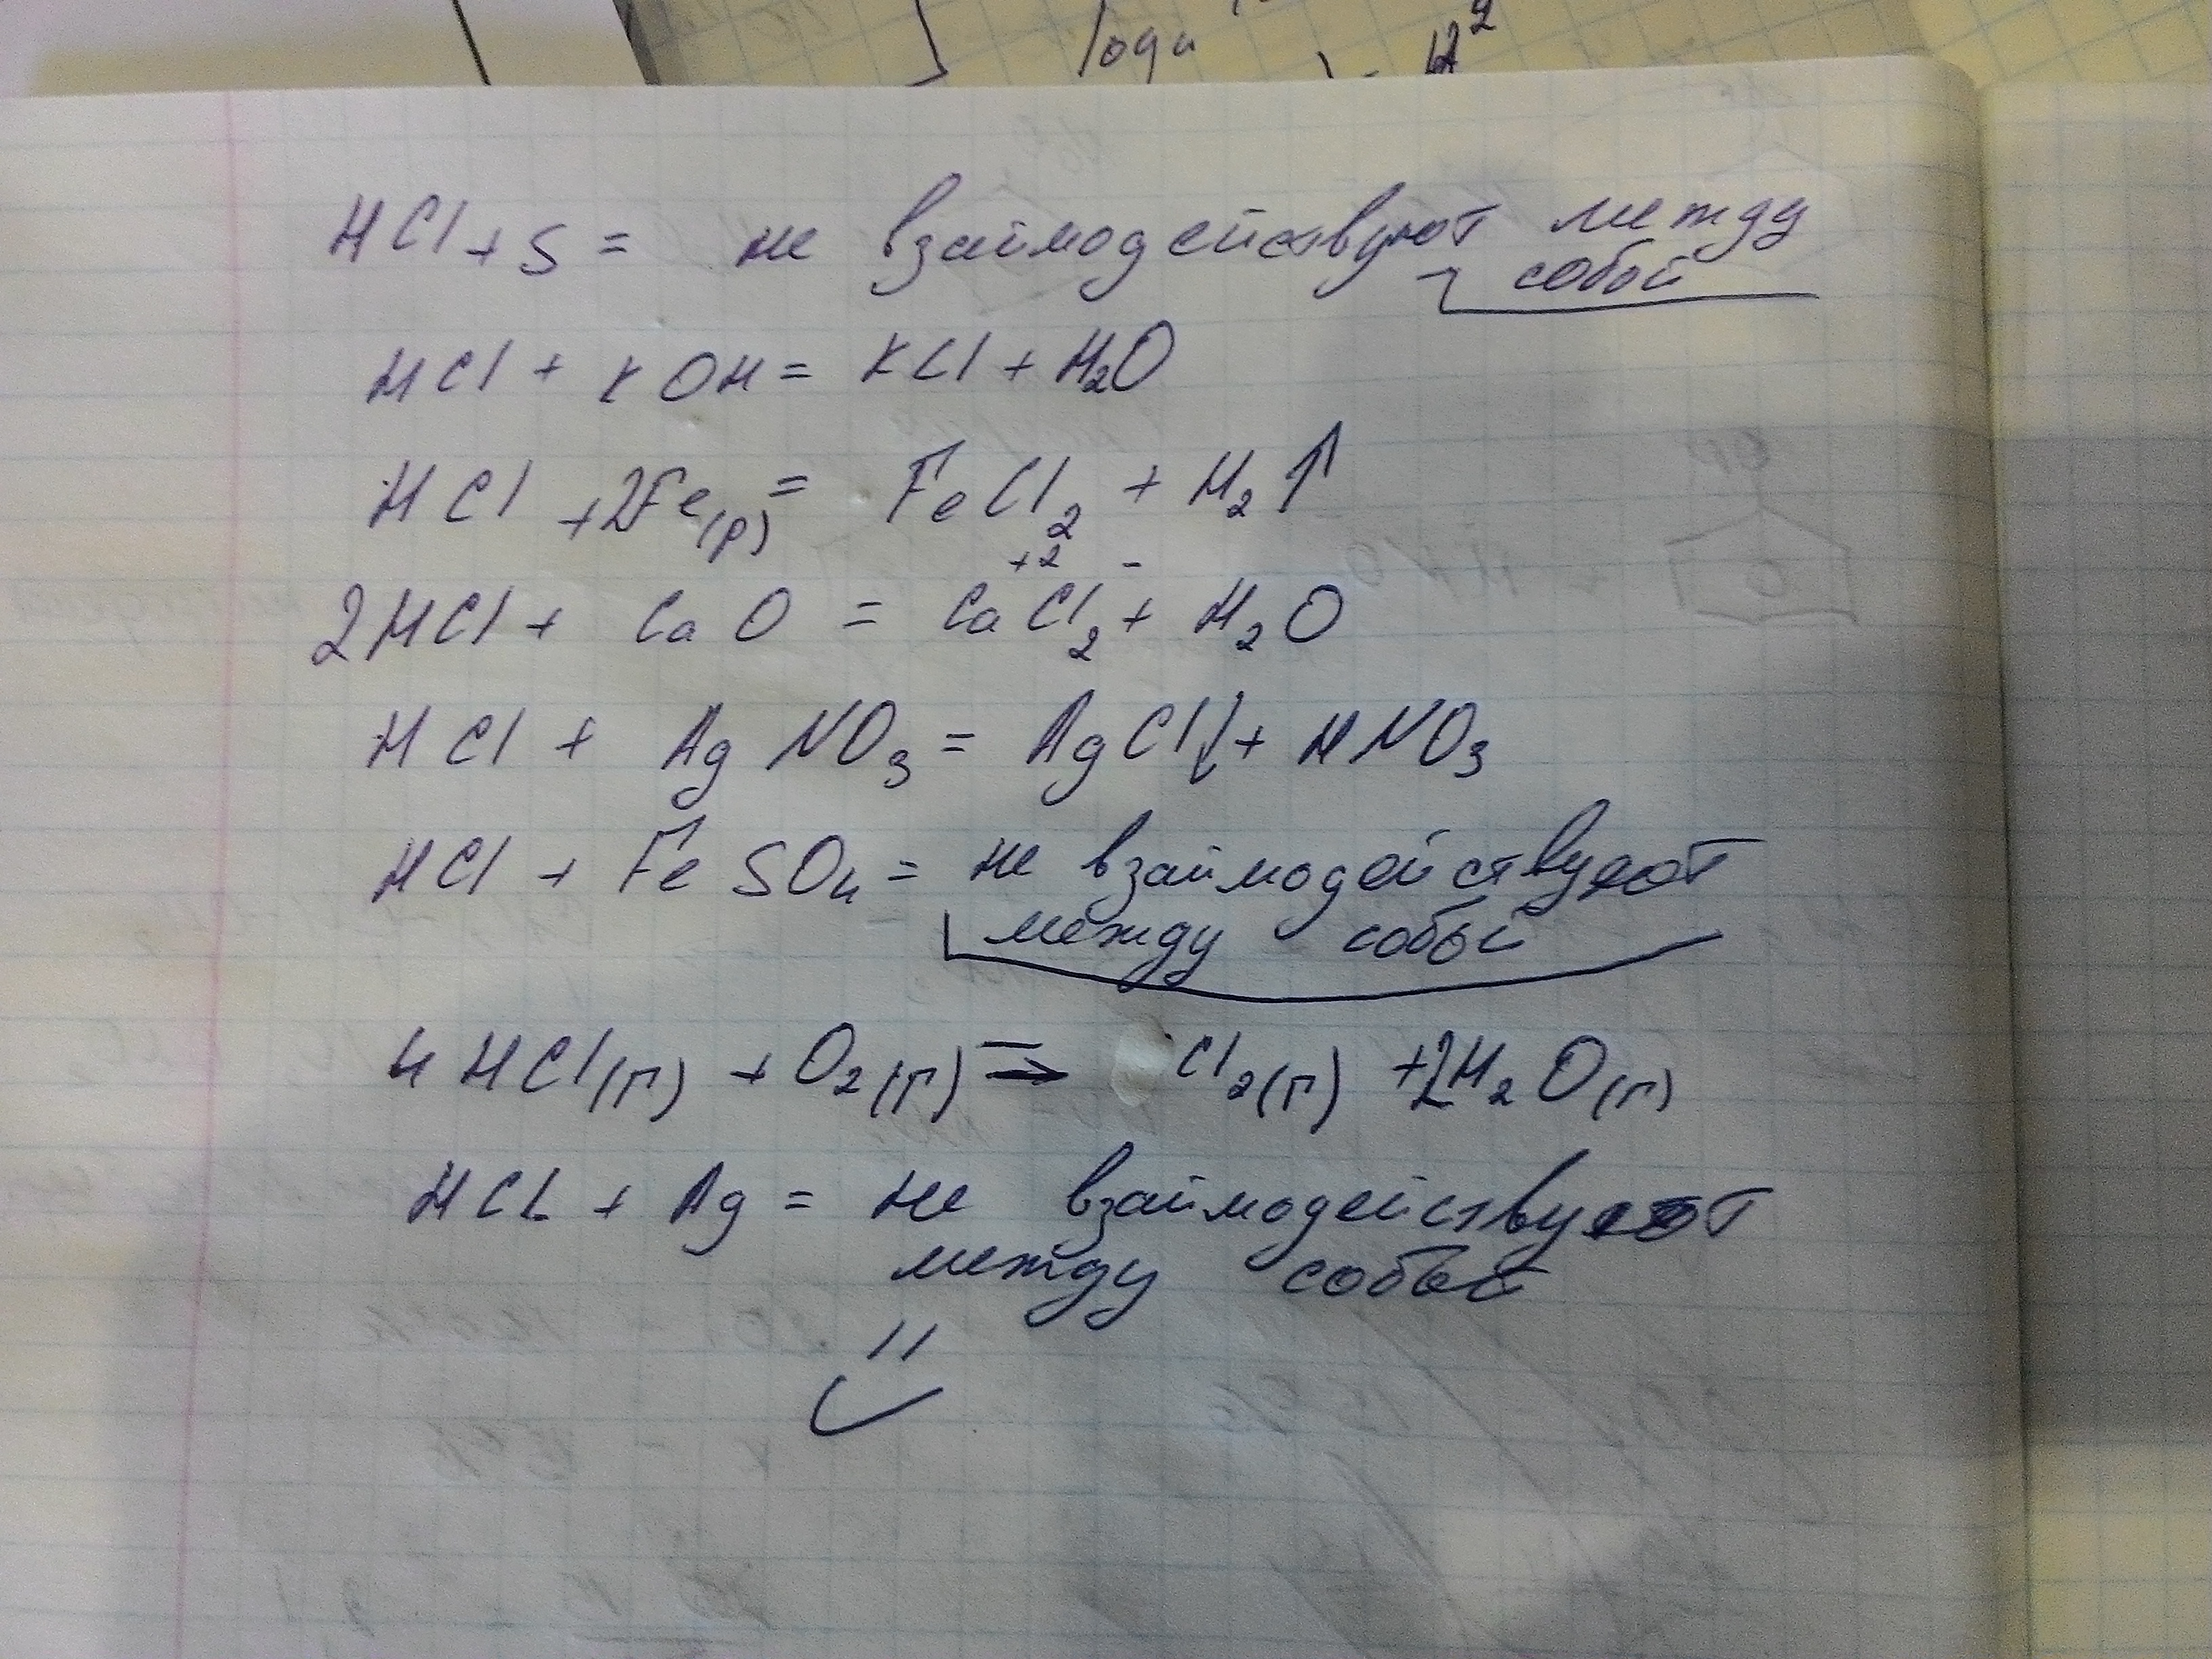 logа
12²
HCl + S = не взаимодействуют между
собой
HCl + KOH = KCl + H₂O
HCl + 2Fe(р) = FeCl₂ + H₂↑
+2 -
2HCl + CaO = CaCl₂ + H₂O
HCl + AgNO₃ = AgCl↓ + HNO₃
HCl + FeSO₄ = не взаимодействуют
между собой
4HCl(г) + O₂(г) ⇒ Cl₂(г) + 2H₂O(г)
HCL + Ag = не взаимодействуют
между собой